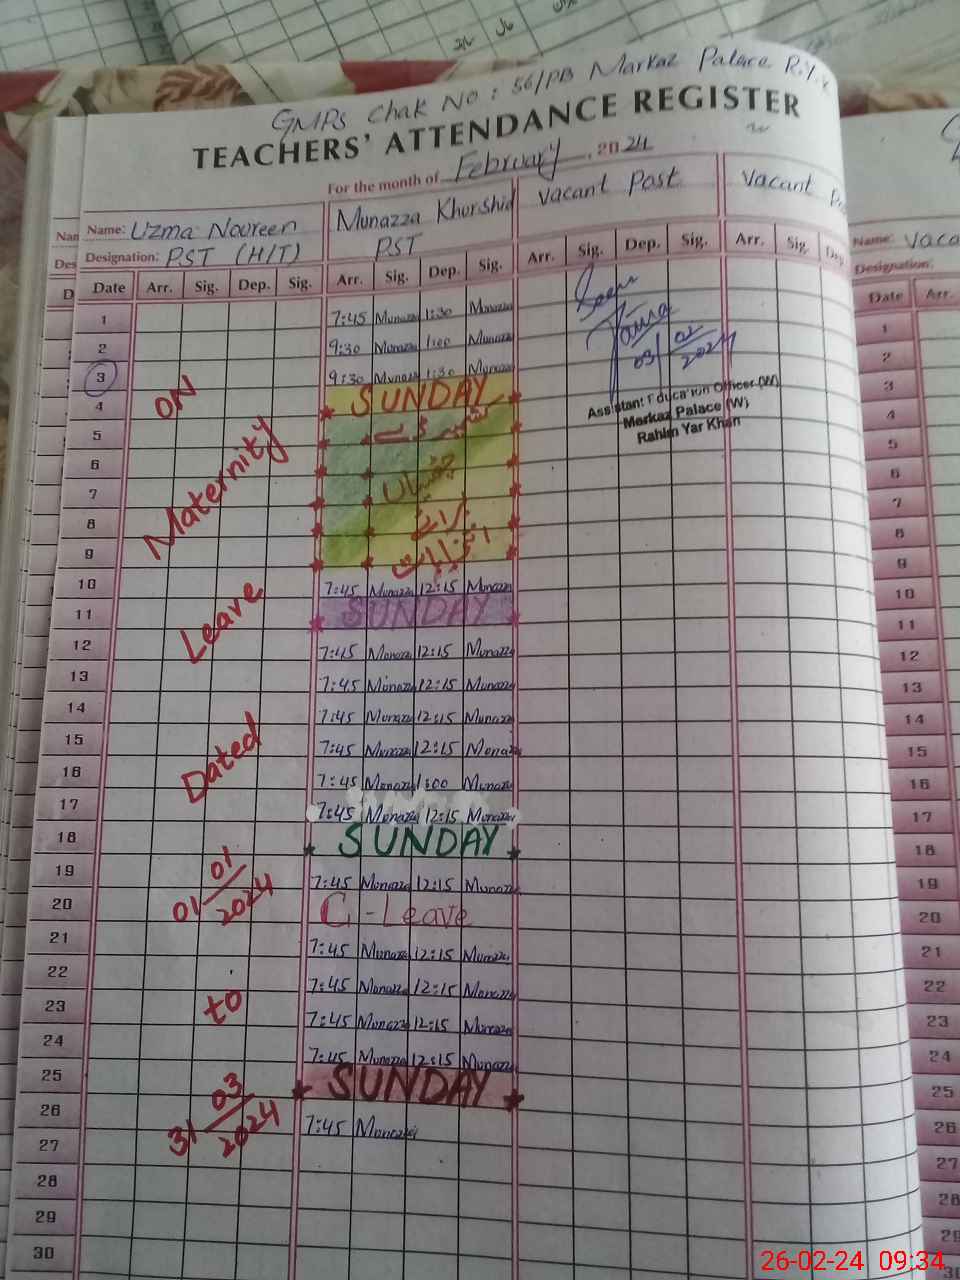 GMPS Chak No: 56/PB Markaz Palace R.Y.K
TEACHERS' ATTENDANCE REGISTER
For the month of February, 2024
Name: Uzma Noureen Munazza Khurshid Vacant Post Vacant
Designation: PST (H/T) PST
Date Arr. Sig. Dep. Sig. Arr. Sig. Dep. Sig. Arr. Sig. Dep. Sig. Arr. Sig. Dep.
1 7:45 Munazza 1:30 Munazza
2 9:30 Munazza 1:00 Munazza
3 9:30 Munazza 1:30 Munazza
4 SUNDAY
5
6
7
8
9
10 7:45 Munazza 12:15 Munazza
11 SUNDAY
12 7:45 Munazza 12:15 Munazza
13 7:45 Munazza 12:15 Munazza
14 7:45 Munazza 12:15 Munazza
15 7:45 Munazza 12:15 Munazza
16 7:45 Munazza 1:00 Munazza
17 7:45 Munazza 12:15 Munazza
18 SUNDAY
19 7:45 Munazza 12:15 Munazza
20 C-Leave
21 7:45 Munazza 12:15 Munazza
22 7:45 Munazza 12:15 Munazza
23 7:45 Munazza 12:15 Munazza
24 7:45 Munazza 12:15 Munazza
25 SUNDAY
26 7:45 Munazza
27
28
29
30
ON
Maternity
Leave
Dated
01/01/2024
to
31/03/2024
چھٹیاں
برائے
انتخابات
Seen
03/02/2024
Assistant Education Officer (W)
Markaz Palace (W)
Rahim Yar Khan
Name: Vaca
Designation:
Date Arr.
1
2
3
4
5
6
7
8
9
10
11
12
13
14
15
16
17
18
19
20
21
22
23
24
25
26
27
28
29
26-02-24 09:34